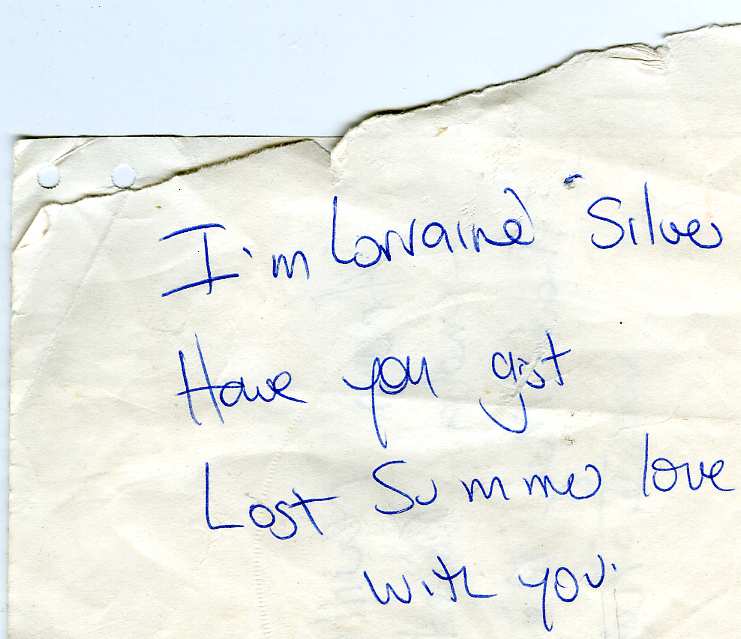 I'm Lorraine Silver
Have you got
Lost Summer love
with you.